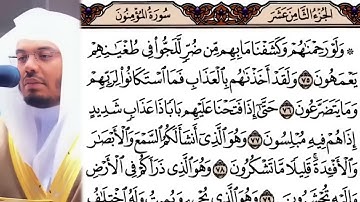 الجزء الثامن عشر سورة المؤمنون
۞ وَلَوْ رَحِمْنَاهُمْ وَكَشَفْنَا مَا بِهِم مِّن ضُرٍّ لَّلَجُّوا۟ فِى طُغْيَانِهِمْ
يَعْمَهُونَ ٧٥ وَلَقَدْ أَخَذْنَاهُم بِالْعَذَابِ فَمَا اسْتَكَانُوا۟ لِرَبِّهِمْ
وَمَا يَتَضَرَّعُونَ ٧٦ حَتَّىٰ إِذَا فَتَحْنَا عَلَيْهِم بَابًا ذَا عَذَابٍ شَدِيدٍ
إِذَا هُمْ فِيهِ مُبْلِسُونَ ٧٧ وَهُوَ الَّذِى أَنشَأَ لَكُمُ السَّمْعَ وَالْأَبْصَارَ
وَالْأَفْـِٔدَةَ قَلِيلًا مَّا تَشْكُرُونَ ٧٨ وَهُوَ الَّذِى ذَرَأَكُمْ فِى الْأَرْضِ
وَإِلَيْهِ تُحْشَرُونَ ٧٩ وَهُوَ الَّذِى يُحْىِۦ وَيُمِيتُ وَلَهُ اخْتِلَافُ